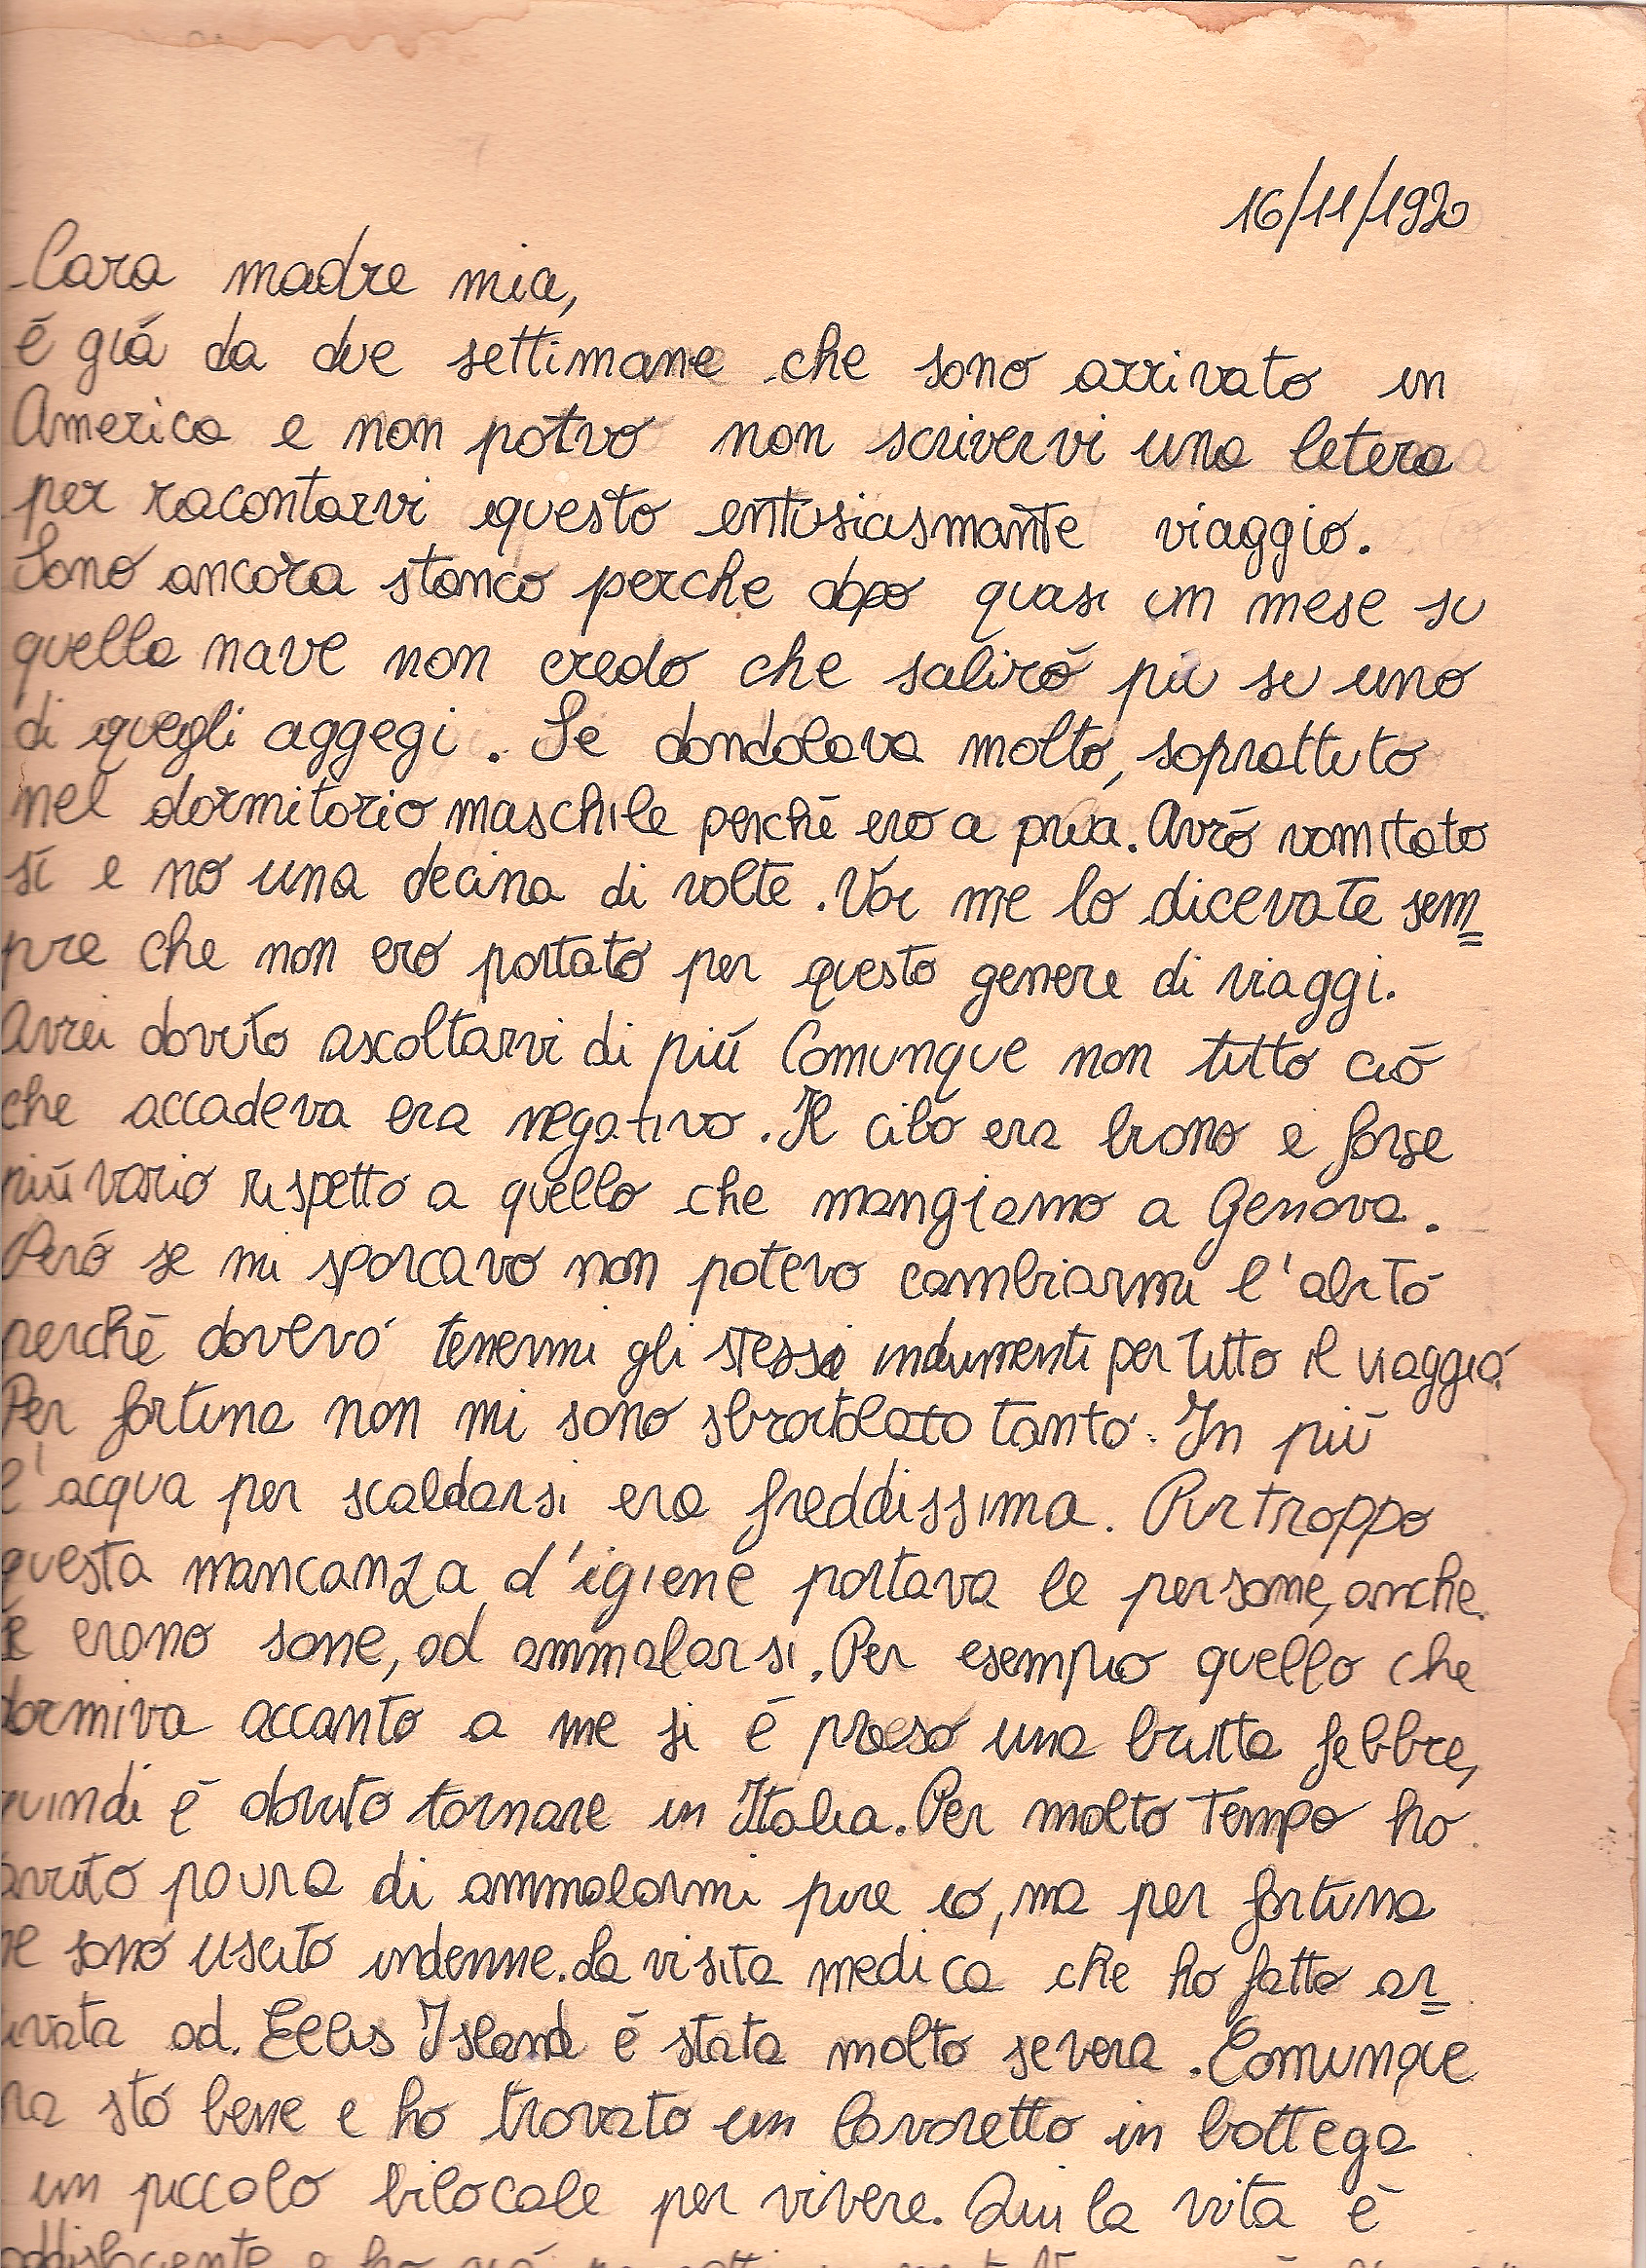 16/11/1920
Cara madre mia,
é giá da due settimane che sono arrivato in
America e non potvo non scrivervi una letera
per racontarvi questo entusiasmante viaggio.
Sono ancora stanco perche dopo quasi un mese su
quella nave non credo che saliró piú su uno
di quegli aggegi. Se dondolava molto, soprattuto
nel dormitorio maschile perché ero a prua. Avró vomitato
sí e no una decina di volte. Voi me lo dicevate sem=
pre che non ero portato per questo genere di viaggi.
Avrei dovuto ascoltarvi di piú Comunque non tutto ció
che accadeva era negativo. Il cibo era buono e forse
piú vario rispetto a quello che mangiamo a Genova.
Peró se mi sporcavo non potevo cambiarmi l'abito
perché dovevo tenermi gli stessi indumenti per tutto il viaggio.
Per fortuna non mi sono sbrodolato tanto. In piú
l'acqua per scaldarsi era freddissima. Purtroppo
questa mancanza d'igiene portava le persone, anche
se erano sane, ad ammalarsi. Per esempio quello che
dormiva accanto a me si é preso una brutta febbre,
quindi é dovuto tornare in Italia. Per molto tempo ho
avuto paura di ammalarmi pure io, ma per fortuna
ne sono uscito indenne. La visita medica che ho fatto ar=
ivata ad. Ellis Island é stata molto severa. Comunque
ra sto bene e ho trovato un lavoretto in bottega
un piccolo bilocale per vivere. Qui la vita é